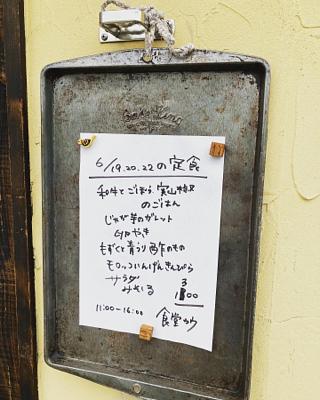 Baker King
6/19.20.22の定食
和牛とごぼう 実山椒
のごはん
じゃが芋のガレット
卵やき
もずくと青うり酢のもの
モロッコいんげんきんぴら
サラダ
みそしる
1300
11:00~16:00 食堂カウ